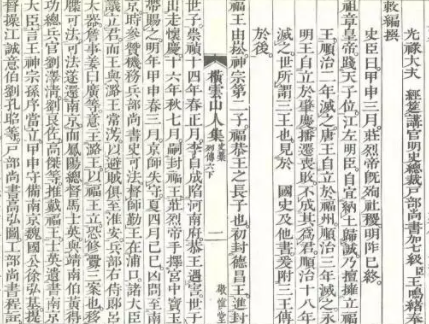 光祿大夫 經筵講官明史總裁戶部尚書加七級臣王鴻緒奉
敕編撰
史臣曰甲申三月莊烈帝旣殉社稷明阼已終
祖章皇帝踐天子位江左明臣自宜納土歸誠乃擅擁立福
王順治二年滅之唐王自立於福州順治三年滅之永
明王自立於肇慶播遷喪敗不成其爲君順治十八年
滅之世所謂三王也見於 國史及他書爰附三王傳
於後
橫雲山人集 史稾 列傳六下 一 敬慎堂
福王由崧神宗第二子福恭王之長子也初封德昌王進封
世子崇禎十四年春正月李自成陷河南府恭王遇害世子
出走懷慶十六年秋七月嗣封福王莊烈帝手擇宮中寶玉
帶賜之明年甲申春三月京師失守夏四月己巳凶問至南
京時參贊機務兵部尚書史可法督師勤王在浦口諸大臣
議立君而王與潞王常淓以避賊俱至淮安兵部右侍郎呂
大器詹事姜曰廣等意立潞王以福王立恐修釁三案也移
牒可法可法遂還南京而鳳陽總督馬士英與靖南伯黃得
功總兵官劉澤清劉良佐高傑等推戴福王士英遺書南京
大臣言王神宗孫序當立甲申守備南京魏國公徐弘基提
督操江誠意伯劉孔昭等戶部尚書高弘圖工部尚書程註